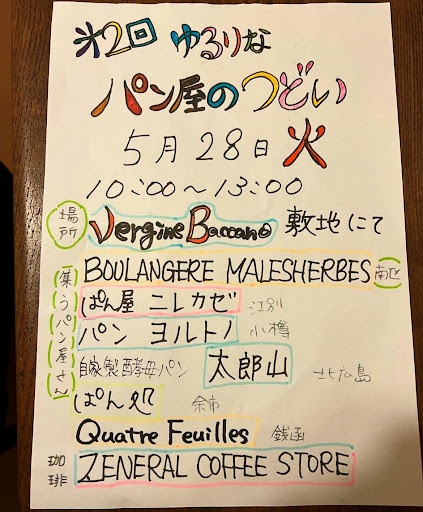 第2回 ゆるりな
パン屋のつどい
5月28日 火
10:00～13:00
場所 Vergine Baccano 敷地にて
集うパン屋さん
BOULANGERE MALESHERBES 南区
ぱん屋 ニレカゼ 江別
パン ヨルトノ 小樽
自家製酵母パン 太郎山 北広島
ぱん処 余市
Quatre Feuilles 銭函
珈琲 ZENERAL COFFEE STORE